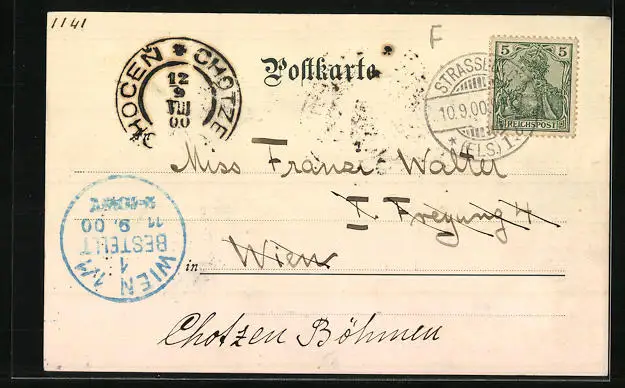 1141
CHOCEN * CHOTZE
12
9
VIII
00
Postkarte
F
STRASSB
10.9.00
* (ELS.) 1.
5 5
REICHSPOST
Miss Franzi Walter
I Freyung 4
in Wien
WIEN 1/1
1
BESTELLT
11 9. 00
Chotzen Böhmen